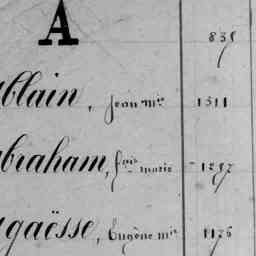 A
835
ablain, Jean mie 1311
abraham, fois marie 1297
agaësse, Eugène mie 1176